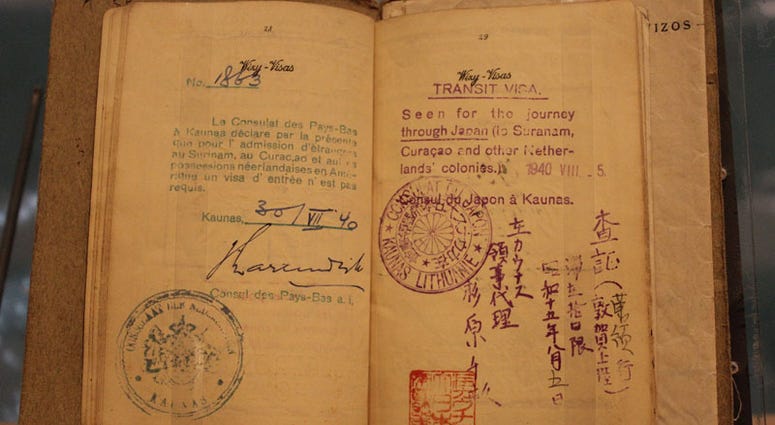 28
Wizy - Visas
No. 1863
Le Consulat des Pays-Bas
à Kaunas déclare par la présente
que pour l' admission d'étrangers
au Surinam, au Curaçao et autres
possessions néerlandaises en Amé-
rique un visa d' entrée n' est pas
requis.
Kaunas, 30/VII 40
Consul des Pays-Bas a. i.
29
Wizy - Visas
TRANSIT VISA.
Seen for the journey
through Japan (to Suranam,
Curaçao and other Nether-
lands' colonies.) 1940 VIII. 5.
Consul du Japon à Kaunas.
CONSULAT DU JAPON
KAUNAS LITHUANIE
査証(蘭領行)
(敦賀上陸)
昭和十五年八月五日
在カウナス
領事代理
杉原
IZOS